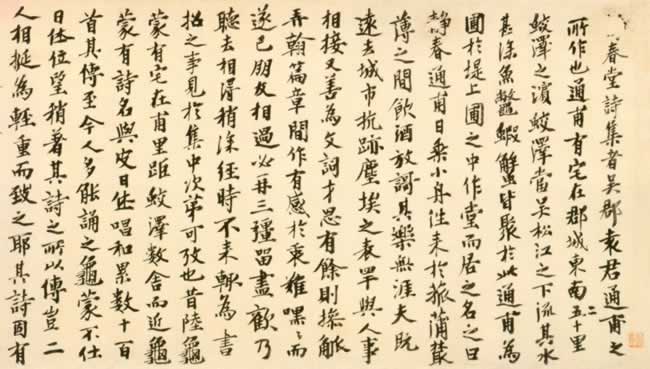 春堂詩集者吳郡袁君通甫之
所作也通甫有宅在郡城東南五十二里
蛟澤之濵蛟澤當吳松江之下流其水
甚深魚鼈蝦蟹皆聚於此通甫為
圃於堤上圃之中作堂而居之名之曰
靜春通甫日乗小舟往来於菰蒲叢
薄之間飲酒放謌其樂無涯夫既
遠去城市抗跡塵埃之表罕與人事
相接又善為文詞才思有餘則操觚
弄翰篇章間作有感於衷難嘿〻而
遂已朋友相過必再三彊留盡歡乃
聽去相得稍深經時不来輙為書
招之事見於集中次第可攷也昔陸龜
蒙有宅在甫里距蛟澤數舍而近龜
蒙有詩名與皮日休唱和累數十百
首其傳至今人多能誦之龜蒙不仕
日休位望稍著其詩之所以傳豈二
人相挺為輕重而致之耶其詩固有